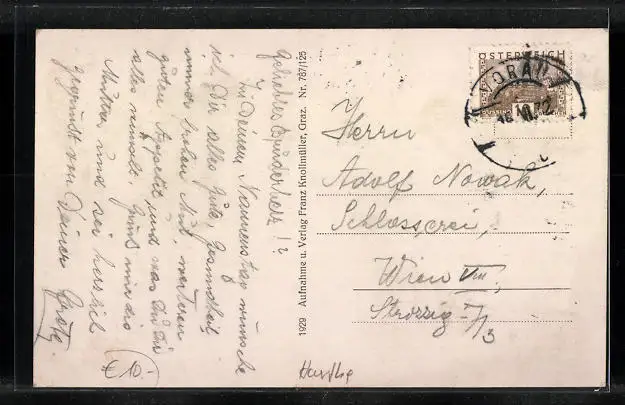 Geliebtes Bruderherz!?
Zu Deinem Namenstag wünsche
ich Dir alles Gute, Gesundheit,
immer frohen Mut, weiteren
guten Appetit, und was Du Dir
alles wünscht. Grüß mir die
Mutter und sei herzlich
gegrüßt von Deiner Grete.
€ 10.-
1929 Aufnahme u. Verlag Franz Knollmüller, Graz. Nr. 787/125
ÖSTERREICH
Herrn
Adolf Nowak,
Schlosserei,
Wien VIII,
Strozzig. 7/3